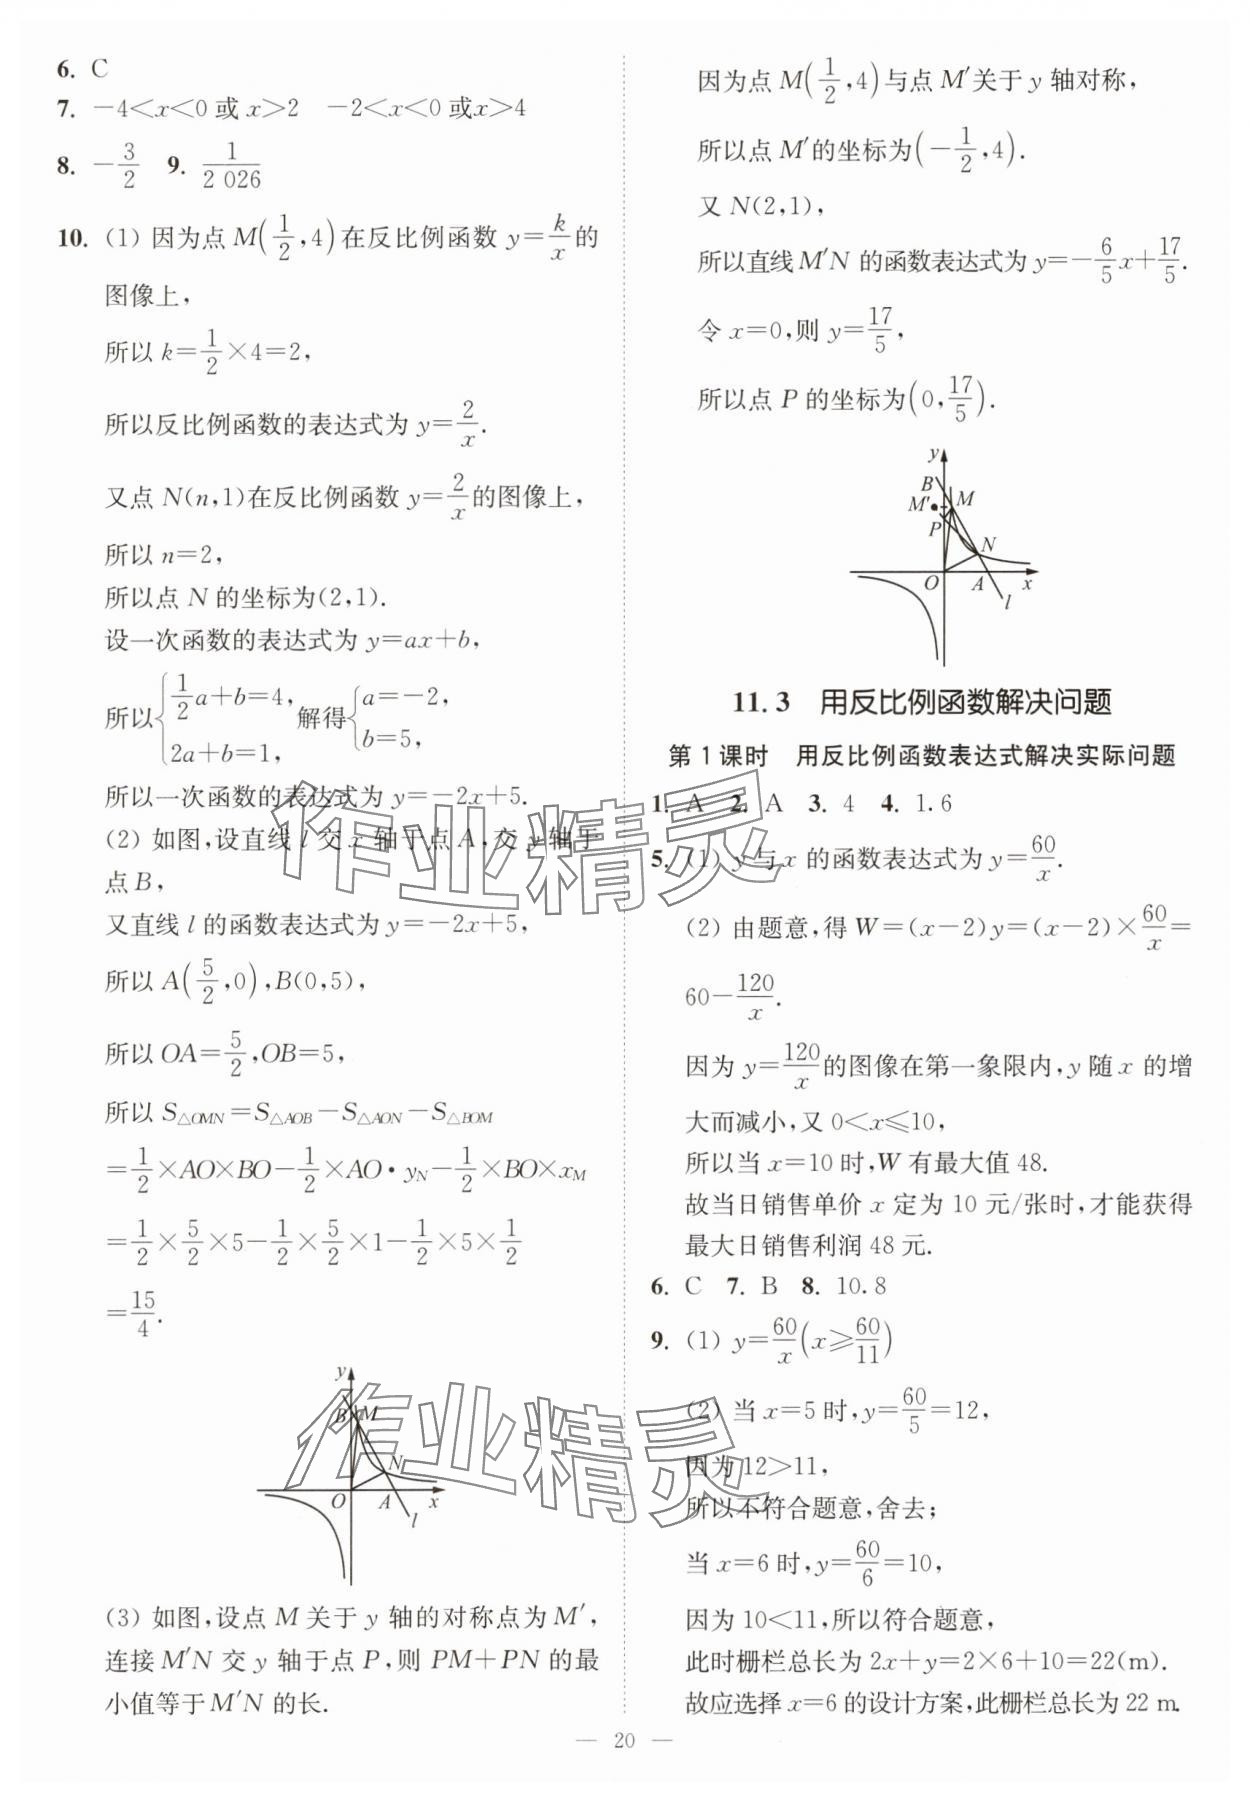 6. C
7. －4＜x＜0 或 x＞2　－2＜x＜0 或x＞4
8. －3/2　9. 1/2 026
10. (1) 因为点 M(1/2,4)在反比例函数 y＝k/x的
图像上，
所以 k＝1/2×4＝2，
所以反比例函数的表达式为 y＝2/x.
又点 N(n,1)在反比例函数 y＝2/x的图像上，
所以 n＝2，
所以点 N 的坐标为(2,1).
设一次函数的表达式为 y＝ax＋b，
所以{1/2a＋b＝4, 2a＋b＝1, 解得{a＝－2, b＝5,
所以一次函数的表达式为 y＝－2x＋5.
(2) 如图，设直线 l 交 x 轴于点 A，交 y 轴于
点 B，
又直线 l 的函数表达式为 y＝－2x＋5，
所以 A(5/2,0),B(0,5)，
所以 OA＝5/2,OB＝5，
所以 S△OMN＝S△AOB－S△AON－S△BOM
＝1/2×AO×BO－1/2×AO·yN－1/2×BO×xM
＝1/2×5/2×5－1/2×5/2×1－1/2×5×1/2
＝15/4.
y
B
M
N
O
A
x
l
(3) 如图，设点 M 关于 y 轴的对称点为 M′，
连接 M′N 交 y 轴于点 P，则 PM＋PN 的最
小值等于 M′N 的长.
因为点 M(1/2,4)与点 M′关于 y 轴对称，
所以点 M′的坐标为(－1/2,4).
又 N(2,1)，
所以直线M′N 的函数表达式为 y＝－6/5x＋17/5.
令 x＝0，则 y＝17/5，
所以点 P 的坐标为(0,17/5).
y
B
M′
M
P
N
O
A
x
l
11.3　用反比例函数解决问题
第 1 课时　用反比例函数表达式解决实际问题
1. A　2. A　3. 4　4. 1.6
5. (1) y 与 x 的函数表达式为 y＝60/x.
(2) 由题意，得 W＝(x－2)y＝(x－2)×60/x＝
60－120/x.
因为 y＝120/x的图像在第一象限内，y 随 x 的增
大而减小，又 0＜x≤10，
所以当 x＝10 时，W 有最大值 48.
故当日销售单价 x 定为 10 元/张时，才能获得
最大日销售利润 48 元.
6. C　7. B　8. 10.8
9. (1) y＝60/x(x≥60/11)
(2) 当 x＝5 时，y＝60/5＝12，
因为 12＞11，
所以不符合题意，舍去；
当 x＝6 时，y＝60/6＝10，
因为 10＜11，所以符合题意，
此时栅栏总长为 2x＋y＝2×6＋10＝22(m).
故应选择 x＝6 的设计方案，此栅栏总长为 22 m.
作业精灵
作业精灵
— 20 —